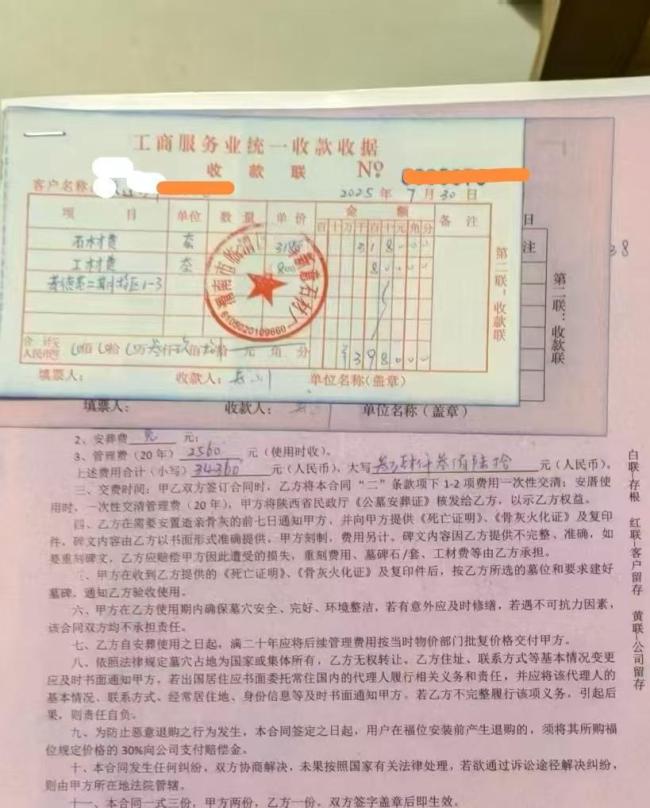 工商服务业统一收款收据
收款联 №
客户名称
2025年7月30日
项目 单位 数量 单价 金额 备注
百十万千百十元角分
石木材费 套 3180 318000
工木材费 套 800 80000
合计 人民币 元角分
¥398000
填票人: 收款人: 单位名称(盖章)
第二联:收款联
日
注
38
第二联:收款联
填票人: 收款人: 单位名称(盖章)
2、安葬费 免 元;
3、管理费(20年) 2360 元(使用时收)。
上述费用合计(小写) 34360 元(人民币),大写 叁万肆仟叁佰陆拾 元(人民币)。
三、交费时间:甲乙双方签订合同时,乙方将本合同“二”条款项下1-2项费用一次性交清;安厝使
用时,一次性交清管理费(20年),甲方将陕西省民政厅《公墓安葬证》核发给乙方,以示乙方权益。
四、乙方在需要安置造亲骨灰的前七日通知甲方,并向甲方提供《死亡证明》、《骨灰火化证》及复印
件,碑文内容由乙方以书面形式准确提供,甲方刻制,费用另计。碑文内容因乙方提供不完整、准确,如
要重刻碑文,乙方应赔偿甲方因此遭受的损失,重刻费用、墓碑石/套、工材费等由乙方承担。
、甲方在收到乙方提供的《死亡证明》、《骨灰火化证》及复印件后,按乙方所选的墓位和要求建好
墓碑,通知乙方验收使用。
六、甲方在乙方使用期内确保墓穴安全、完好、环境整洁,若有意外应及时修缮,若遇不可抗力因素,
该合同双方均不承担责任。
七、乙方自安葬使用之日起,满二十年应将后续管理费用按当时物价部门批复价格交付甲方。
八、依照法律规定墓穴占地为国家或集体所有,乙方无权转让。乙方住址、联系方式等基本情况变更
应及时书面通知甲方,若出国居住应书面委托常住国内的代理人履行相关义务和责任,并应将该代理人的
基本情况、联系方式、经常居住地、身份信息等及时书面通知甲方。若乙方不完整履行该项义务,引起后
果,则责任自负。
九、为防止恶意退购之行为发生,本合同签定之日起,用户在福位安装前产生退购的,须将其所购福
位规定价格的30%向公司支付赔偿金。
十、本合同发生任何纠纷,双方协商解决,未果按照国家有关法律处理,若欲通过诉讼途径解决纠纷,
则由甲方所在地法院管辖。
十一、本合同一式三份,甲方两份,乙方一份,双方签字盖章后即生效。
白联-存根 红联-客户留存 黄联-公司留存